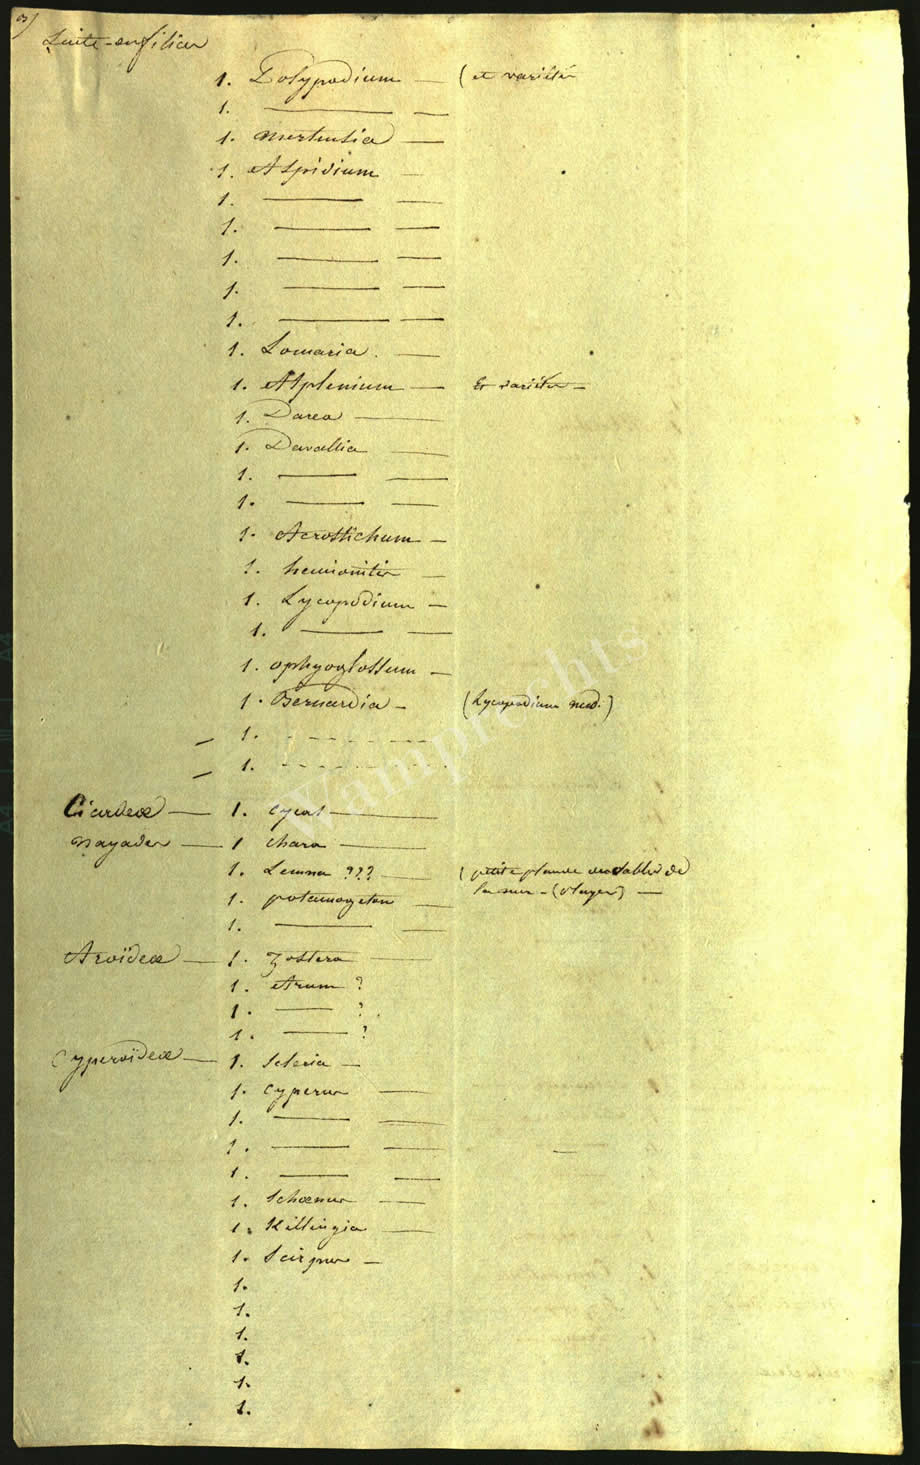 3)
Suite-en filices
1. Polypodium — (et variétés
1. — —
1. Mertensia —
1. Aspidium —
1. — —
1. — —
1. — —
1. — —
1. — —
1. Lomaria. —
1. Asplenium — Et variétés —
1. Darea —
1. Davallia —
1. — —
1. — —
1. Acrostichum —
1. hemionitis —
1. Lycopodium —
1. — —
1. ophyoglossum —
1. Bernardia — (Lycopodium nud.)
— 1. - - - - - -
— 1. - - - - - -
Cicardeæ — 1. Cycas —
nayades — 1 chara —
1. Lemna ??? — (petite plante des sables de
la mer — (Plages) —
1. potamogeton —
1. — —
Aroïdeæ — 1. Zostera —
1. Arum ?
1. — ?
1. — ?
Cyperoïdeæ — 1. Scleria —
1. Cyperus —
1. — —
1. — —
1. — —
1. Schœnus —
1. Killingia —
1. Scirpus —
1.
1.
1.
1.
1.
1.
Wamprechts